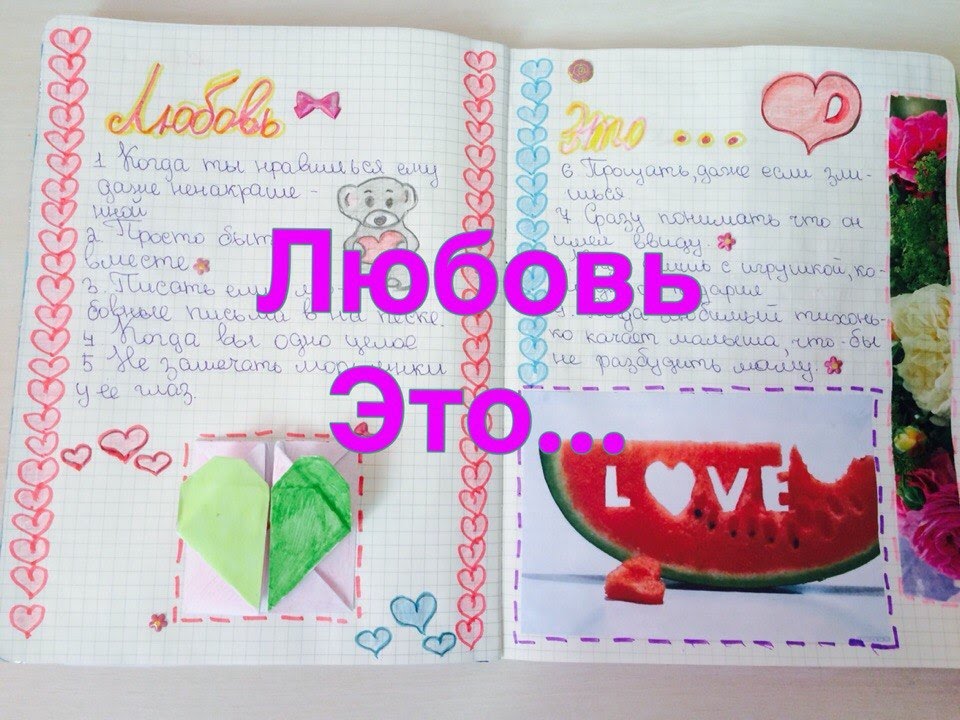 Любовь
1 Когда ты нравишься ему
даже ненакраше-
нной
2. Просто быть
вместе
3. Писать ему
бовные письма в на песке.
4 Когда вы одно целое
5 Не замечать морщинки
у ее глаз.
Это ...
6. Прощать, даже если зли-
шься
7 Сразу понимать что он
имел ввиду.
с игрушкой, ко-
любимый тихонь-
ко качает малыша, что-бы
не разбудить маму.
Любовь
Это...
LOVE